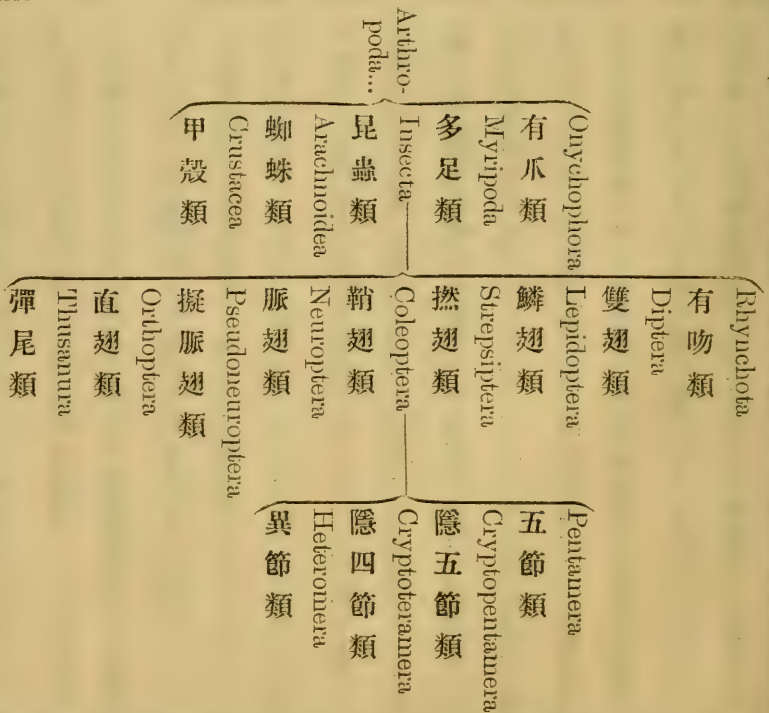 Arthro-
poda...
Onychophora
有爪類
Myripoda
多足類
Insecta
昆蟲類
Arachnoidea
蜘蛛類
Crustacea
甲殼類
Rhynchota
有吻類
Diptera
雙翅類
Lepidoptera
鱗翅類
Strepsiptera
撚翅類
Coleoptera
鞘翅類
Neuroptera
脈翅類
Pseudoneuroptera
擬脈翅類
Orthoptera
直翅類
Thusanura
彈尾類
Pentamera
五節類
Cryptopentamera
隱五節類
Cryptoteramera
隱四節類
Heteromera
異節類